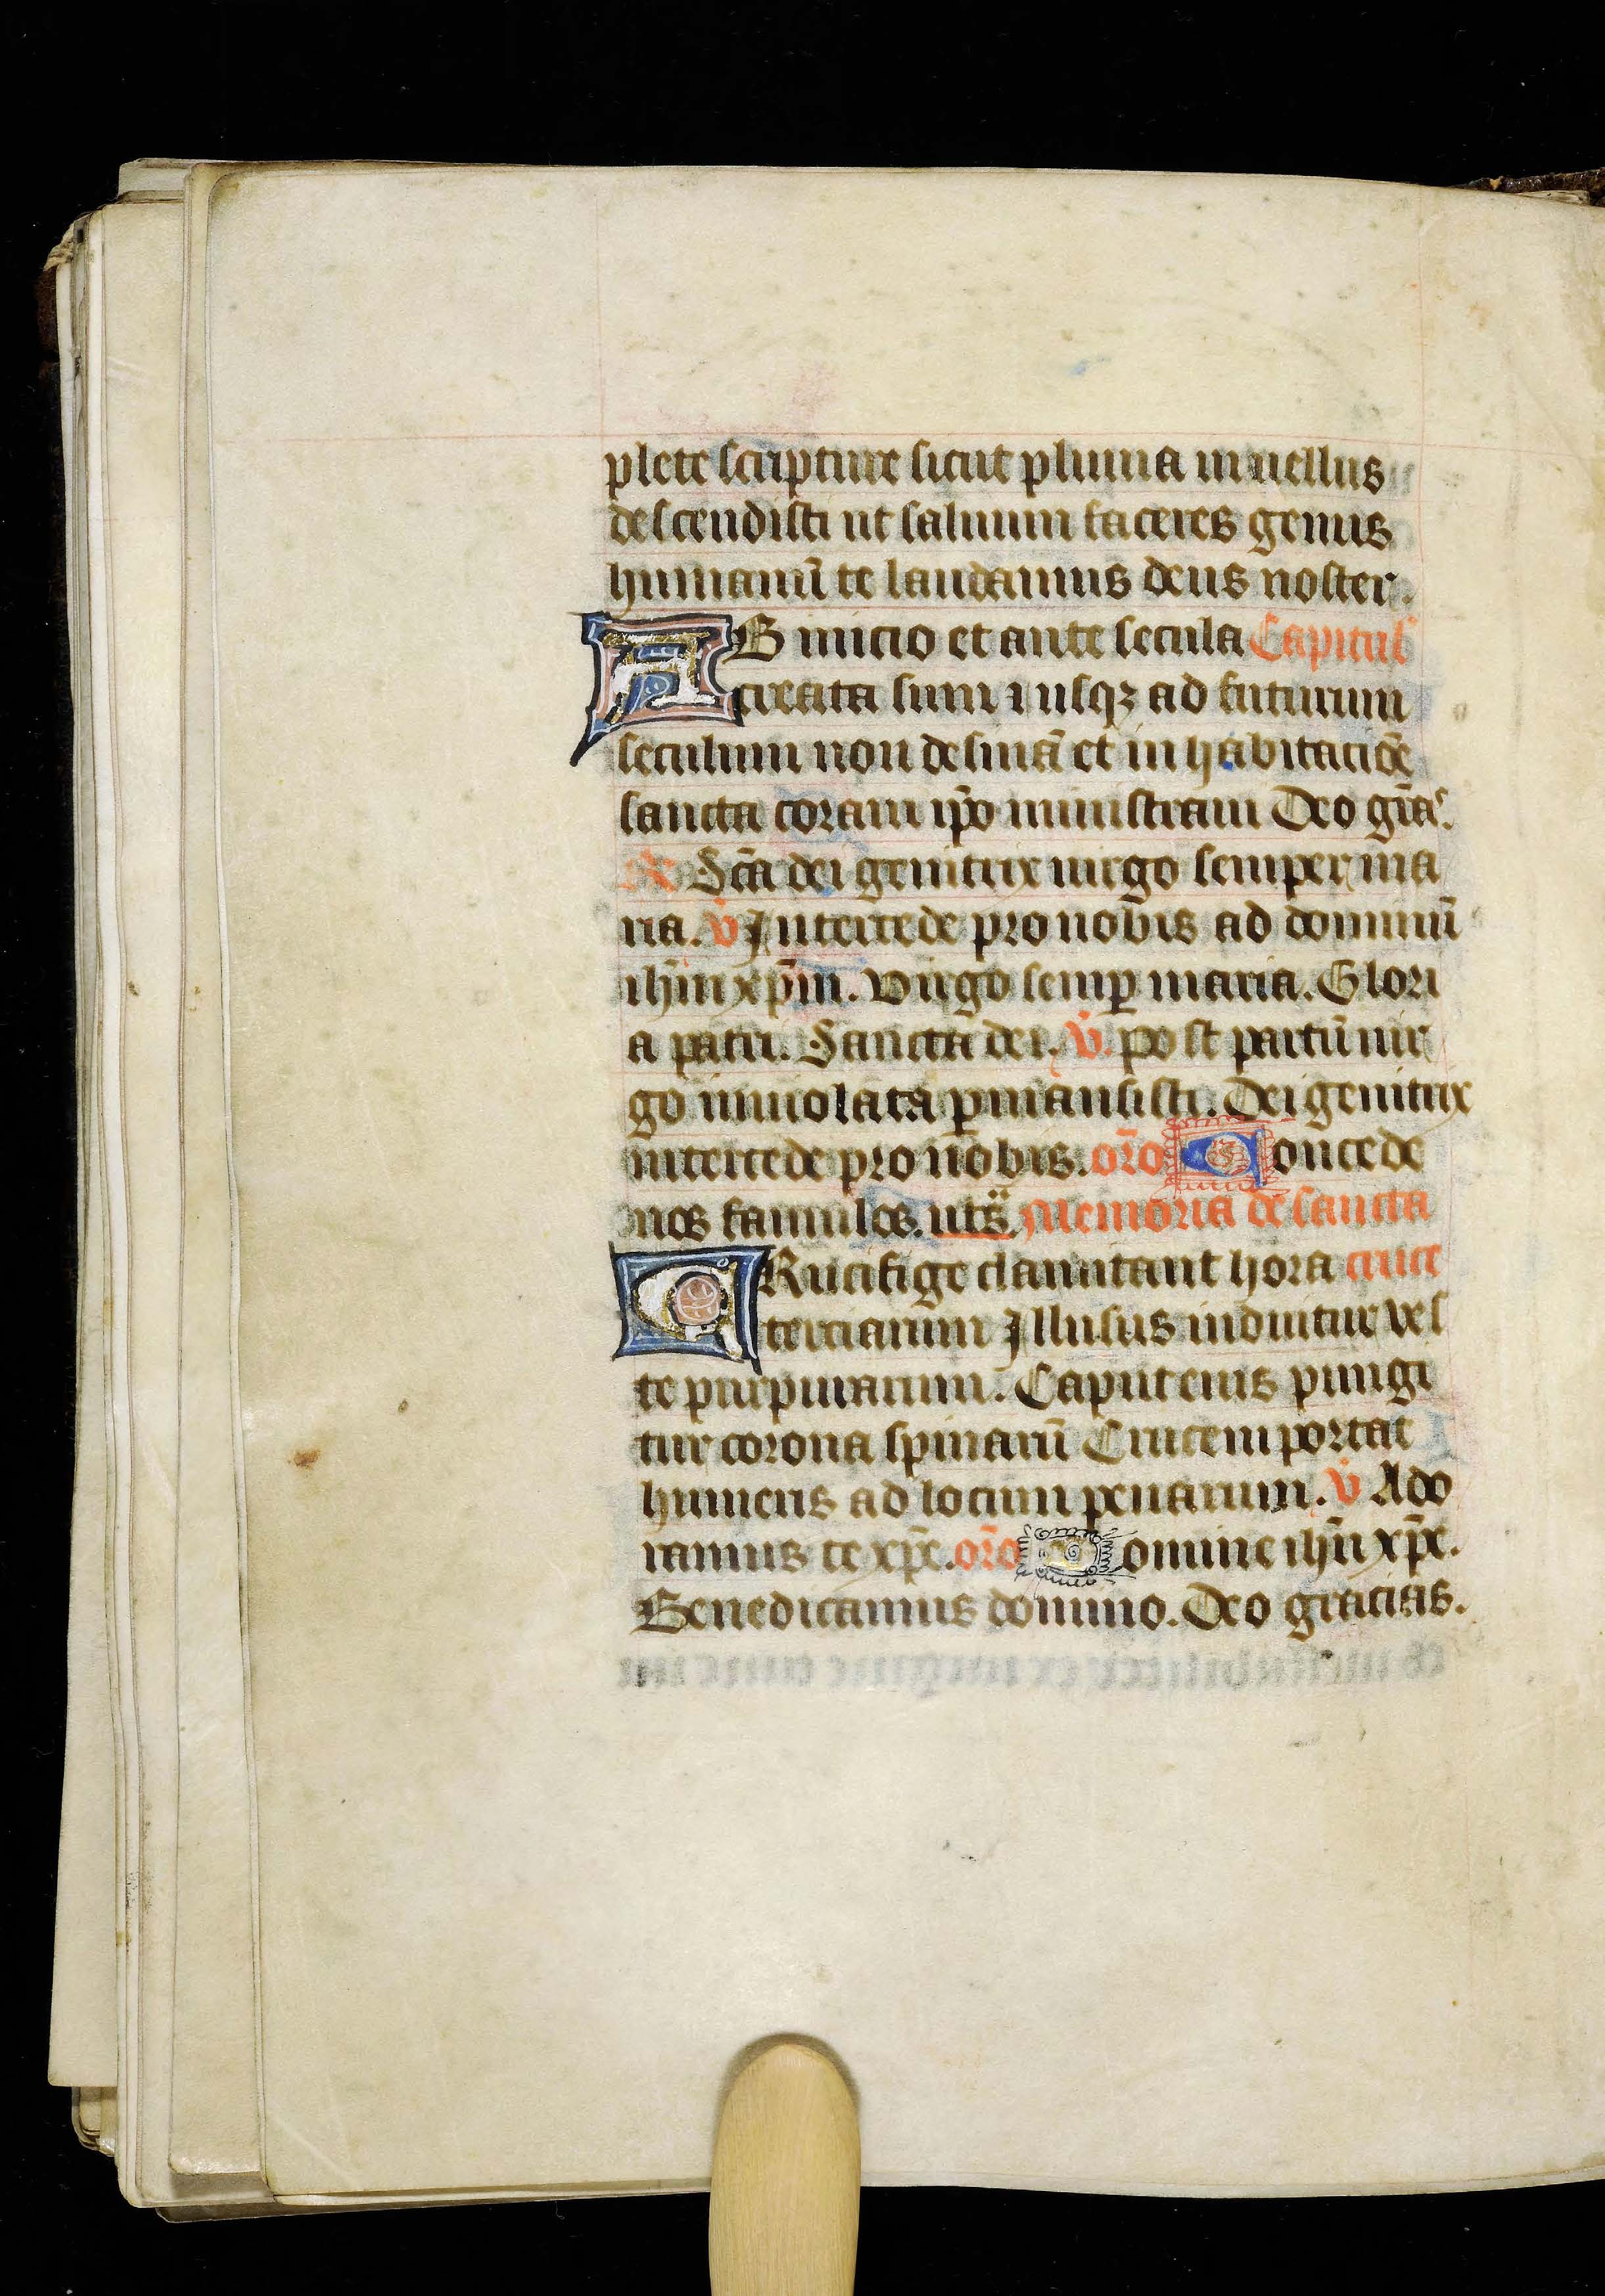 plete scripture sicut pluuia in uellus
descendisti ut saluum faceres genus
humanū te laudamus deus noster.
AB inicio et ante secula Capitul
creata sum ⁊ usqꝫ ad futurum
seculum non desinā et in habitaciōe
sancta coram ip̄o ministraui Deo gr̄as.
R Sc̄a dei genitrix uirgo semper ma
ria. v̄ Intercede pro nobis ad dominū
ih̄m xp̄m. Virgo semꝑ maria. Glori
a patri. Sancta dei. v̄. post partū uir
go inuiolata ꝑmansisti. Dei genitrix
intercede pro nobis. or̄o Concede
nos famulos. uts̄. Memoria de sancta
CRucifige clamitant hora cruce
terciarum Illusus induitur ves
te purpurarum. Caput eius pungi
tur corona spinarū Crucem portat
humeris ad locum penarum. v̄ Ado
ramus te xp̄e. or̄o Domine ih̄u xp̄e.
Benedicamus domino. Deo gracias.